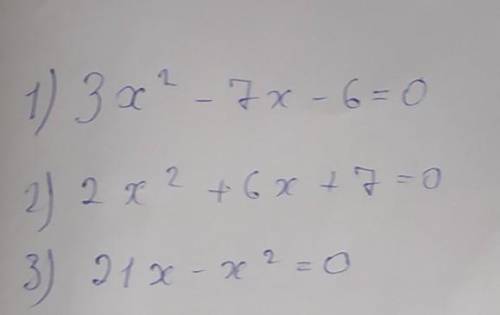 1) 3x² - 7x - 6 = 0
2) 2x² + 6x + 7 = 0
3) 21x - x² = 0